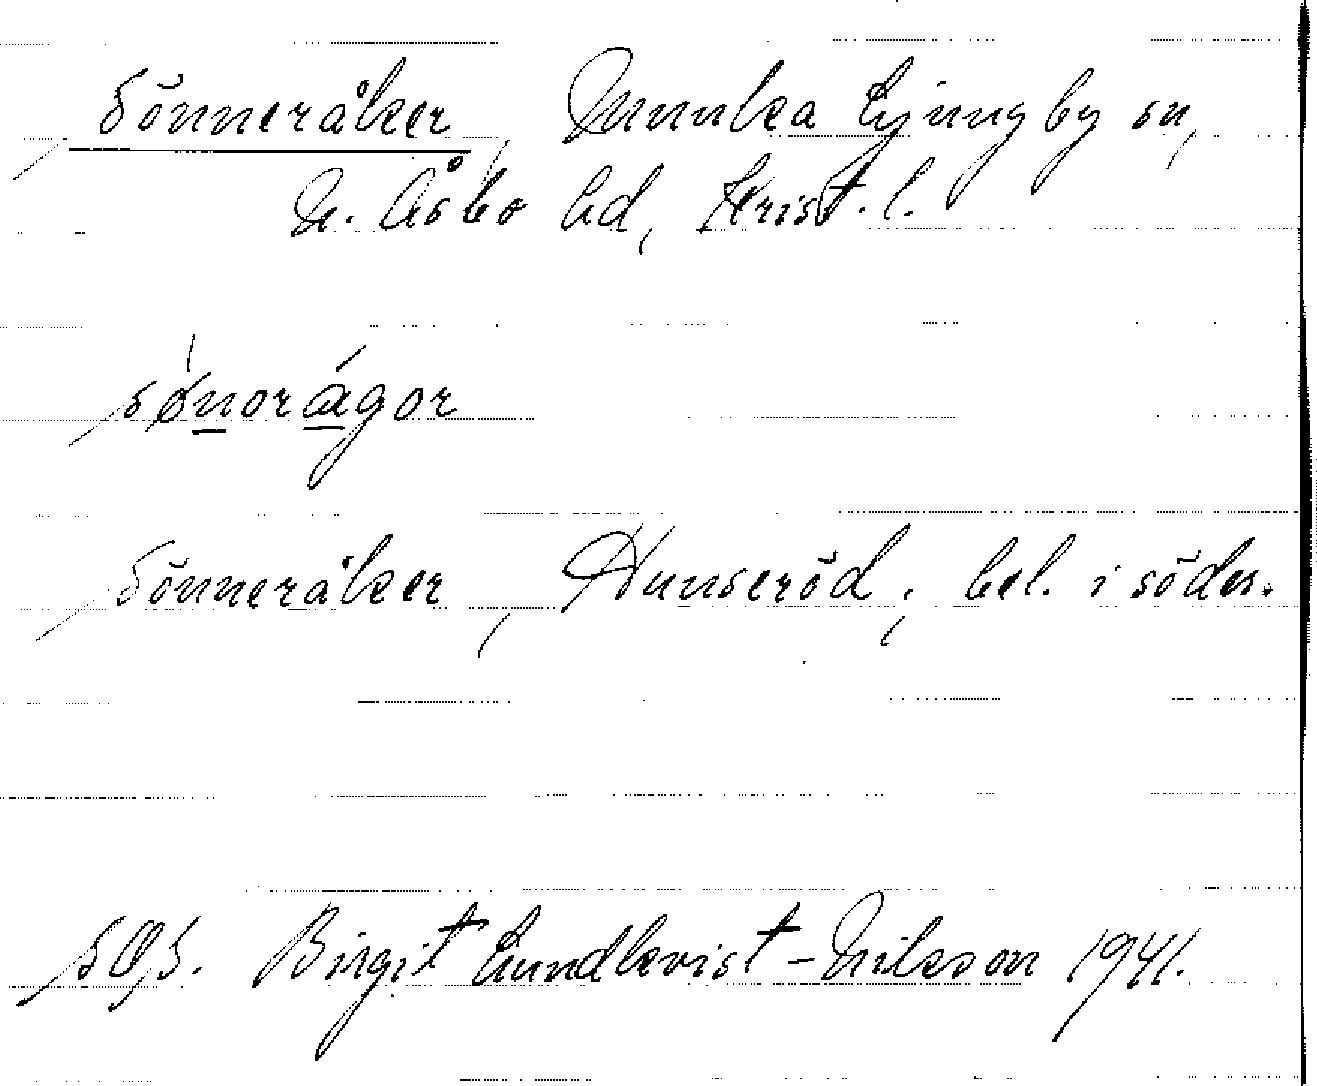 Sönneråker, Munka Ljungby sn,
N. Åsbo hd, Krist. l.
sǿnorágor
Sönneråker, Hunseröd, bel. i söder.
SOS. Birgit Lundkvist-Nilsson 1941.